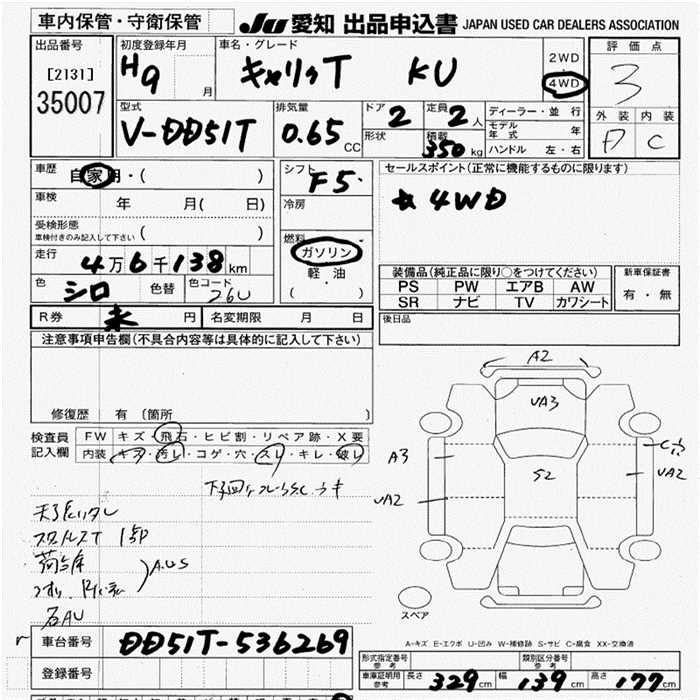 車内保管・守衛保管 JU 愛知 出品申込書 JAPAN USED CAR DEALERS ASSOCIATION
出品番号 初度登録年月 車名・グレード 2WD 評価点
[2131] H9 月 キャリィT KU 4WD 3
35007 外装 内装
型式 排気量 ドア 2 定員 2人 ディーラー・並行
V-DD51T 0.65 CC 形状 積載 350 kg モデル年式 年 D C
ハンドル 左・右
車歴 自家用・( ) シフト F5 セールスポイント(正常に機能するものに限ります)
車検 年 月( 日) 冷房 ☆4WD
受検形態 ( )
車検付きのみ記入して下さい
燃料 ガソリン
走行 4万6千138km 軽油
装備品(純正品に限り○をつけてください) 新車保証書
色 シロ 色替 色コード 26U ( ・ ) PS PW エアB AW 有・無
SR ナビ TV カワシート
R券 未 円 名変期限 月 日 後日品
注意事項申告欄(不具合内容等は具体的に記入して下さい)
修復歴 有 〔箇所 〕
検査員 FW キズ・飛石・ヒビ割・リペア跡・X要
記入欄 内装 キズ・汚レ・コゲ・穴・スレ・キレ・破レ
A2
UA3
A3 S2 UA2
UA2
A.U.S
スペア
A-キズ E-エクボ U-凹み W-補修跡 S-サビ C-腐食 XX-交換済
車台番号 DD51T-536269
形式指定番号 参考 類別区分番号 参考
登録番号 車庫証明用 参考 長さ 329cm 幅 139cm 高さ 177cm